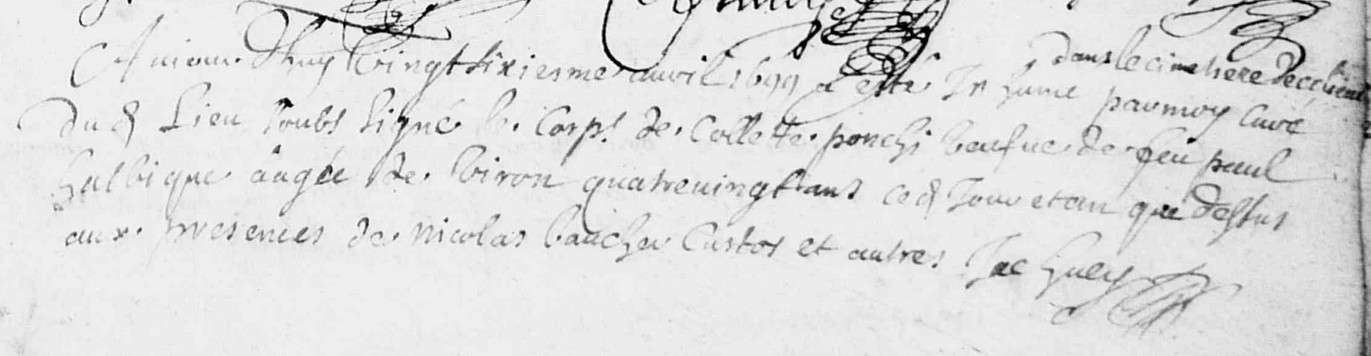 dans le cimetiere de ce lieu
Aujour d'huy vingt sixiesme avril 1699 a esté Inhumé par moy Curé
dud Lieu soubs signé le Corps de Collette ponchi veufue de feu paul
halbique äagée de viron quatrevingt ans ced Jour et an que dessus
aux presences de Nicolas baucher Custos et autres Jac huey